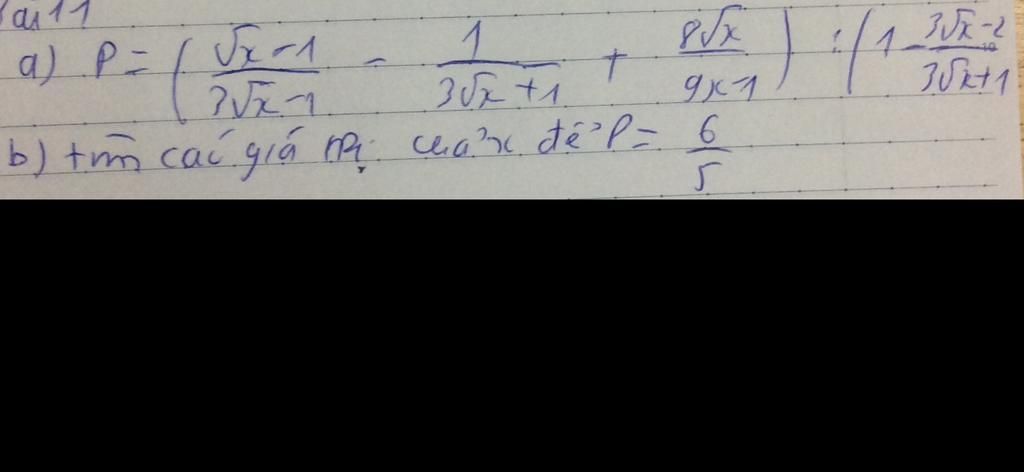 Bài 11
a) P = ( (√x - 1)/(3√x - 1) - 1/(3√x + 1) + 8√x/(9x - 1) ) : ( 1 - (3√x - 2)/(3√x + 1)
b) tìm các giá trị của x để P = 6/5